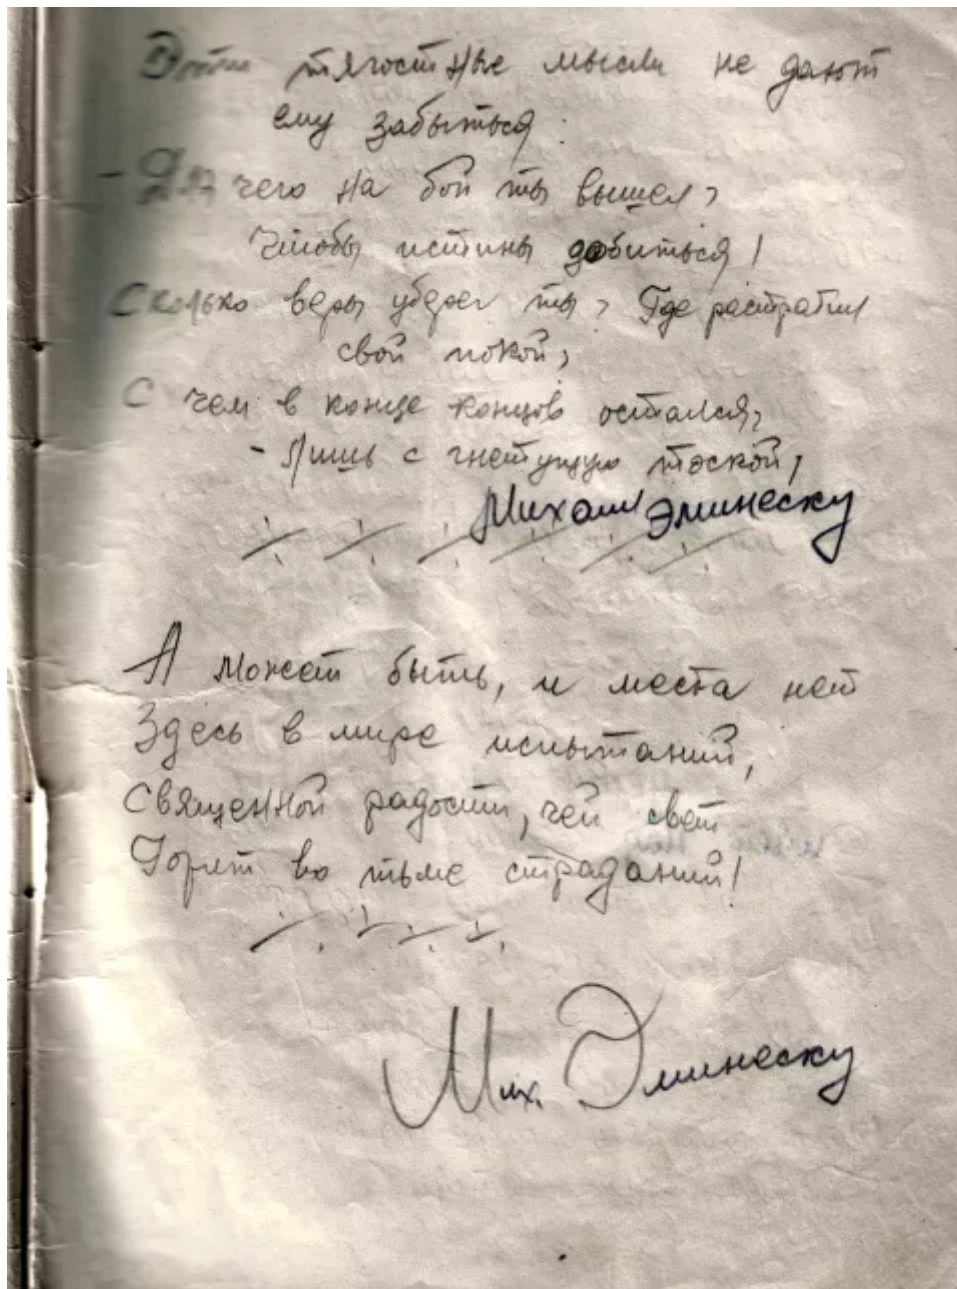 Эти тягостные мысли не дают
ему забыться.
- Для чего на бой ты вышел?
Чтобы истины добиться!
Сколько веры уберег ты? Где растратил
свой покой?
С чем в конце концов остался?
- Лишь с гнетущую тоской?
Михаил Эминеску
А может быть, и места нет
Здесь в мире испытаний,
Священной радости, чей свет
Горит во тьме страданий!
Мих. Эминеску